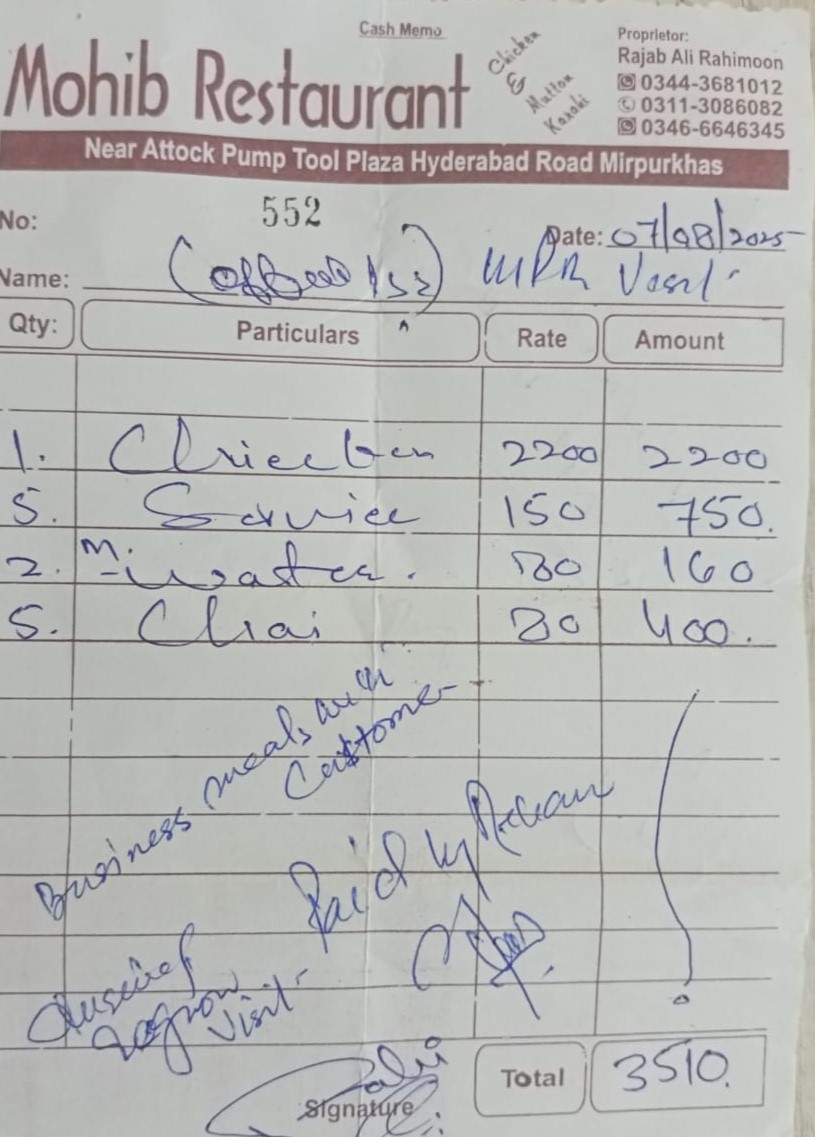 Cash Memo
Mohib Restaurant
Chicken
&
Mutton
Karahi
Proprietor:
Rajab Ali Rahimoon
0344-3681012
0311-3086082
0346-6646345
Near Attock Pump Tool Plaza Hyderabad Road Mirpurkhas
No: 552
Date: 07/08/2025
Name:
Qty: Particulars Rate Amount
1. Chicken 2200 2200
5. Service 150 750.
2. M. Water. 80 160
5. Chai 80 400.
Business meals with
Customer
Paid by
Visit
Total 3510.
Signature